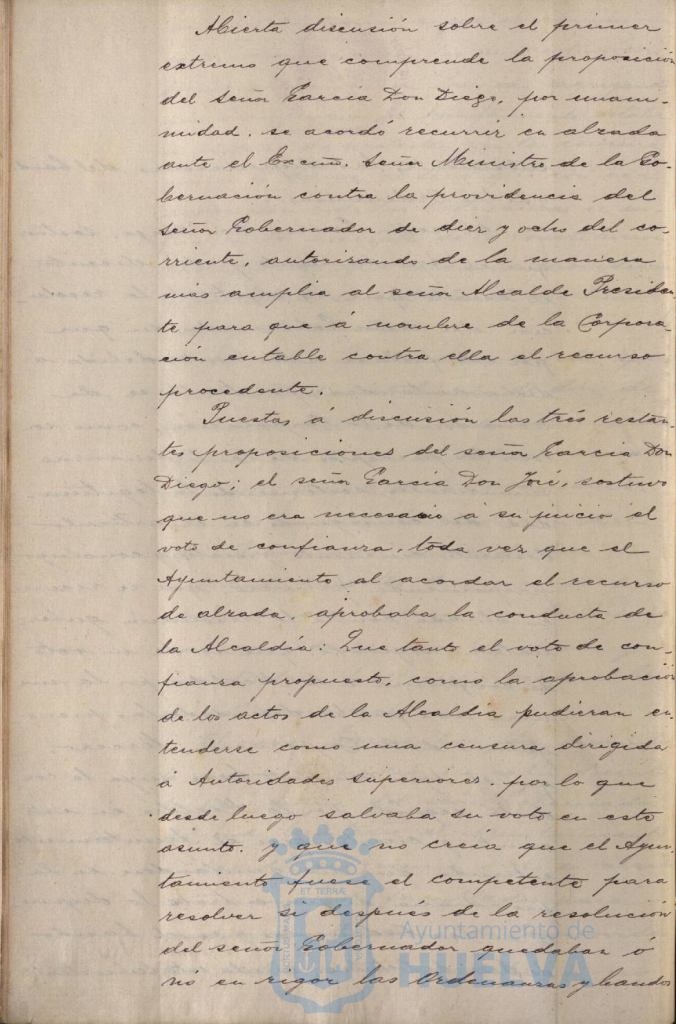 Abierta discusión sobre el primer
extremo que comprende la proposición
del señor Garcia Don Diego, por unani-
midad. se acordó recurrir en alzada
ante el Excmo. Señor Ministro de la Go-
bernación contra la providencia del
señor Gobernador de diez y ocho del co-
rriente, autorizando de la manera
mas amplia al señor Alcalde Presiden-
te para que á nombre de la Corpora-
ción entable contra ella el recurso
procedente.
Puestas á discusión las trés restan-
tes proposiciones del señor Garcia Don
Diego; el señor Garcia Don José, sostuvo
que no era necesario á su juicio el
voto de confianza, toda vez que el
Ayuntamiento al acordar el recurso
de alzada, aprobaba la conducta de
la Alcaldía: Que tanto el voto de con-
fianza propuesto, como la aprobación
de los actos de la Alcaldia pudieran en-
tenderse como una censura dirigida
á Autoridades superiores. por lo que
desde luego salvaba su voto en este
asunto. y que no creia que el Ayun-
tamiento fuese el competente para
resolver si después de la resolución
del señor Gobernador quedaban ó
nó en rigor las Ordenanzas y bandos
Ayuntamiento de
HUELVA